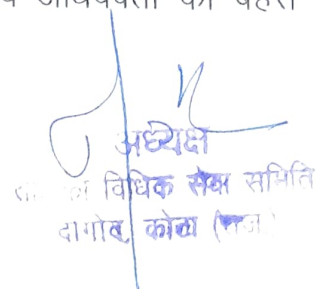 अधिवक्ता की बहस
अध्यक्ष
विधिक सेवा समिति
कोटा (राज.)